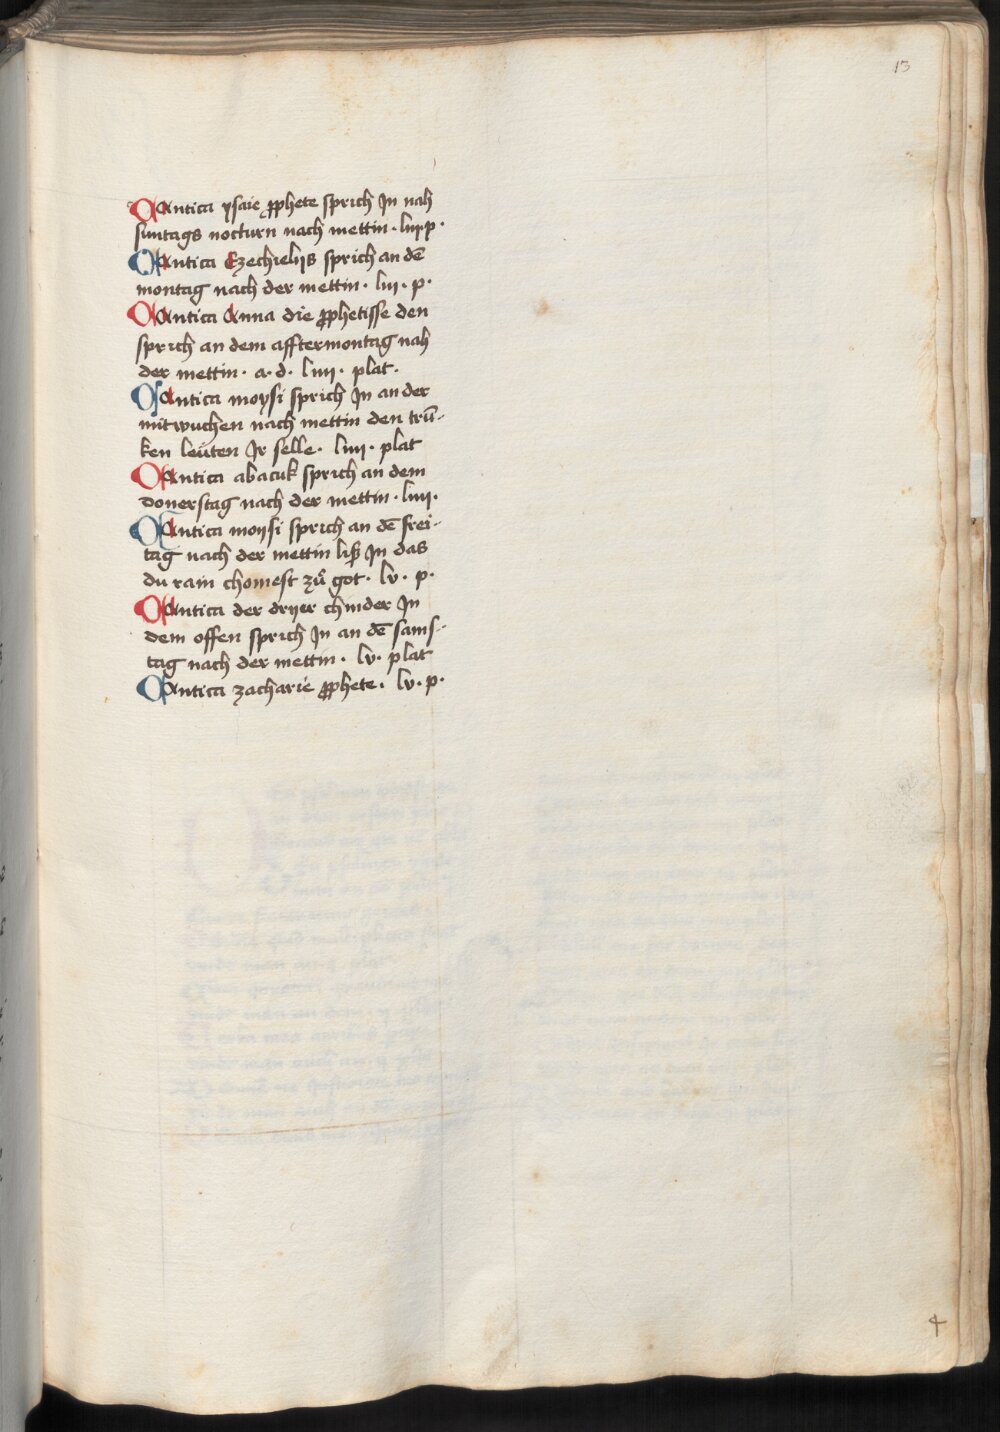 13
Cantica ysaie prophete sprich In nah
suntags nocturn nach mettin · liii p ·
Cantica Ezechielijs sprich an dē
montag nach der mettin · liii · p ·
Cantica Anna die prophetisse den
sprich an dem afftermontag nah
der mettin · a · d · liiii · plat ·
Cantica moysi sprich In an der
mitwuchen nach mettin den trū-
ken leüten Ir selle · liiii · plat
Cantica abacuk sprich an dem
donerstag nach der mettin · liiii ·
Cantica moysi sprich an dē frei-
tag nach der mettin liß In das
du rain chomest zů got · lv · p ·
Cantica der dryer chinder In
dem offen sprich In an dē sams-
tag nach der mettin · lv · plat
Cantica zacharie prophete · lv · p ·